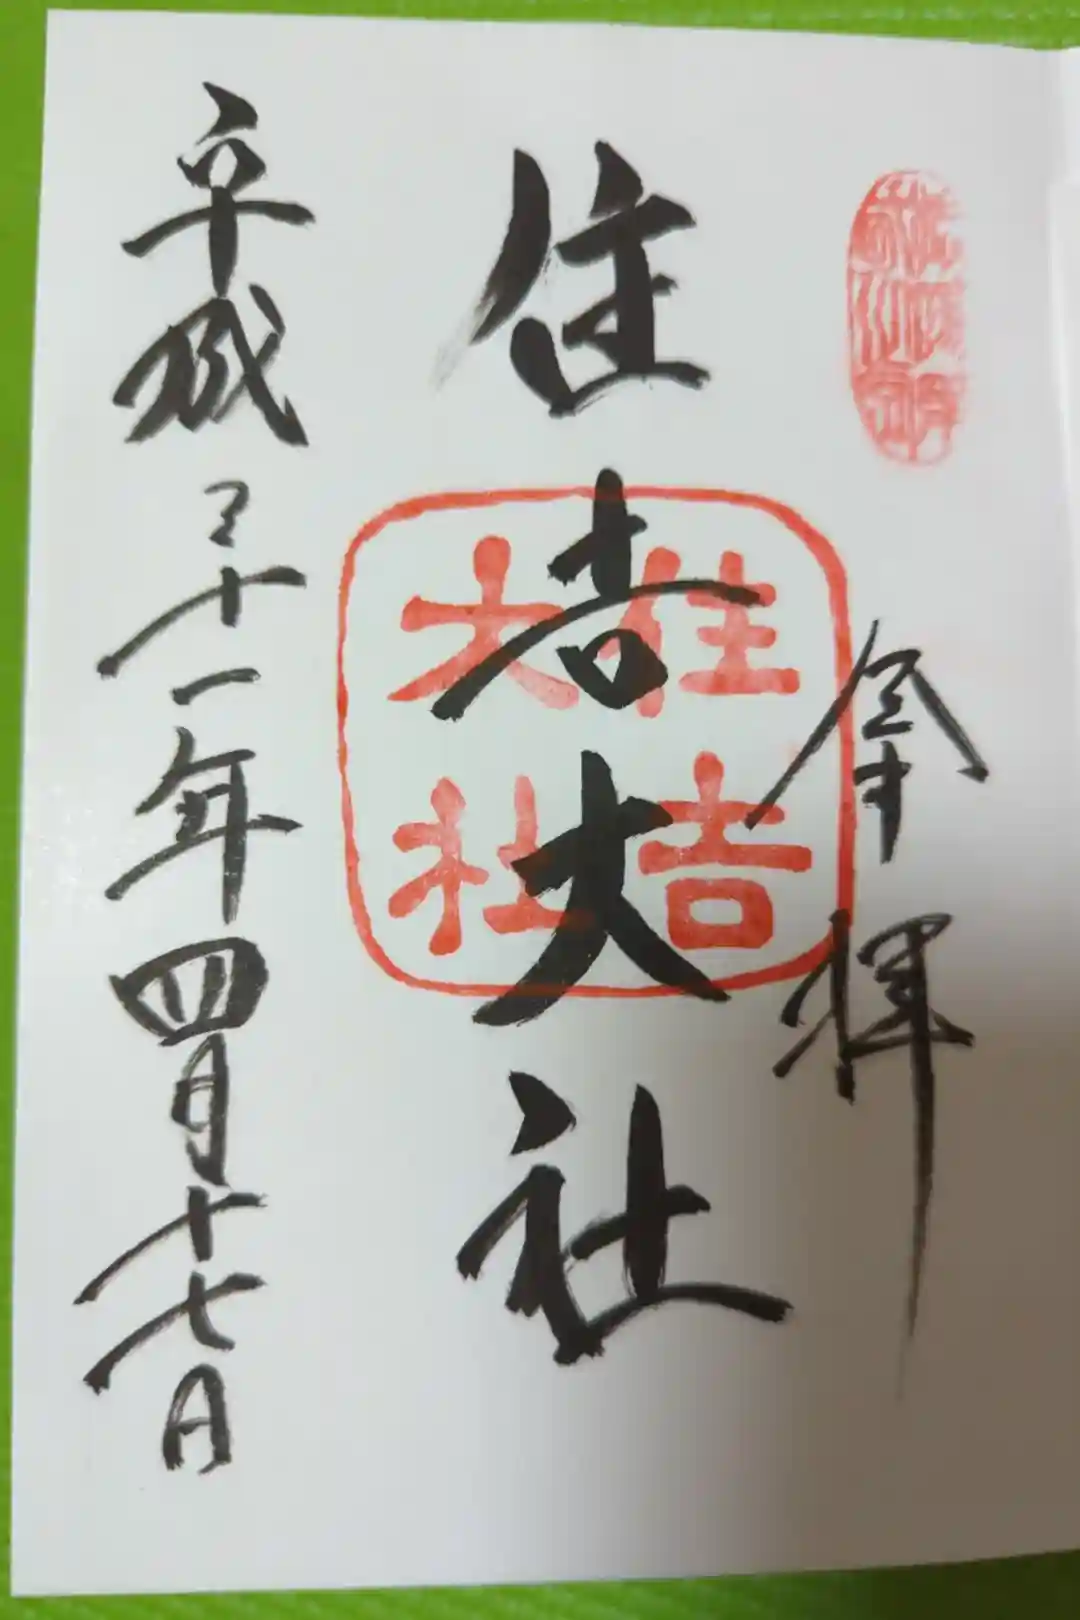 奉拝
住吉大社
住吉
大社
平成三十一年四月十七日